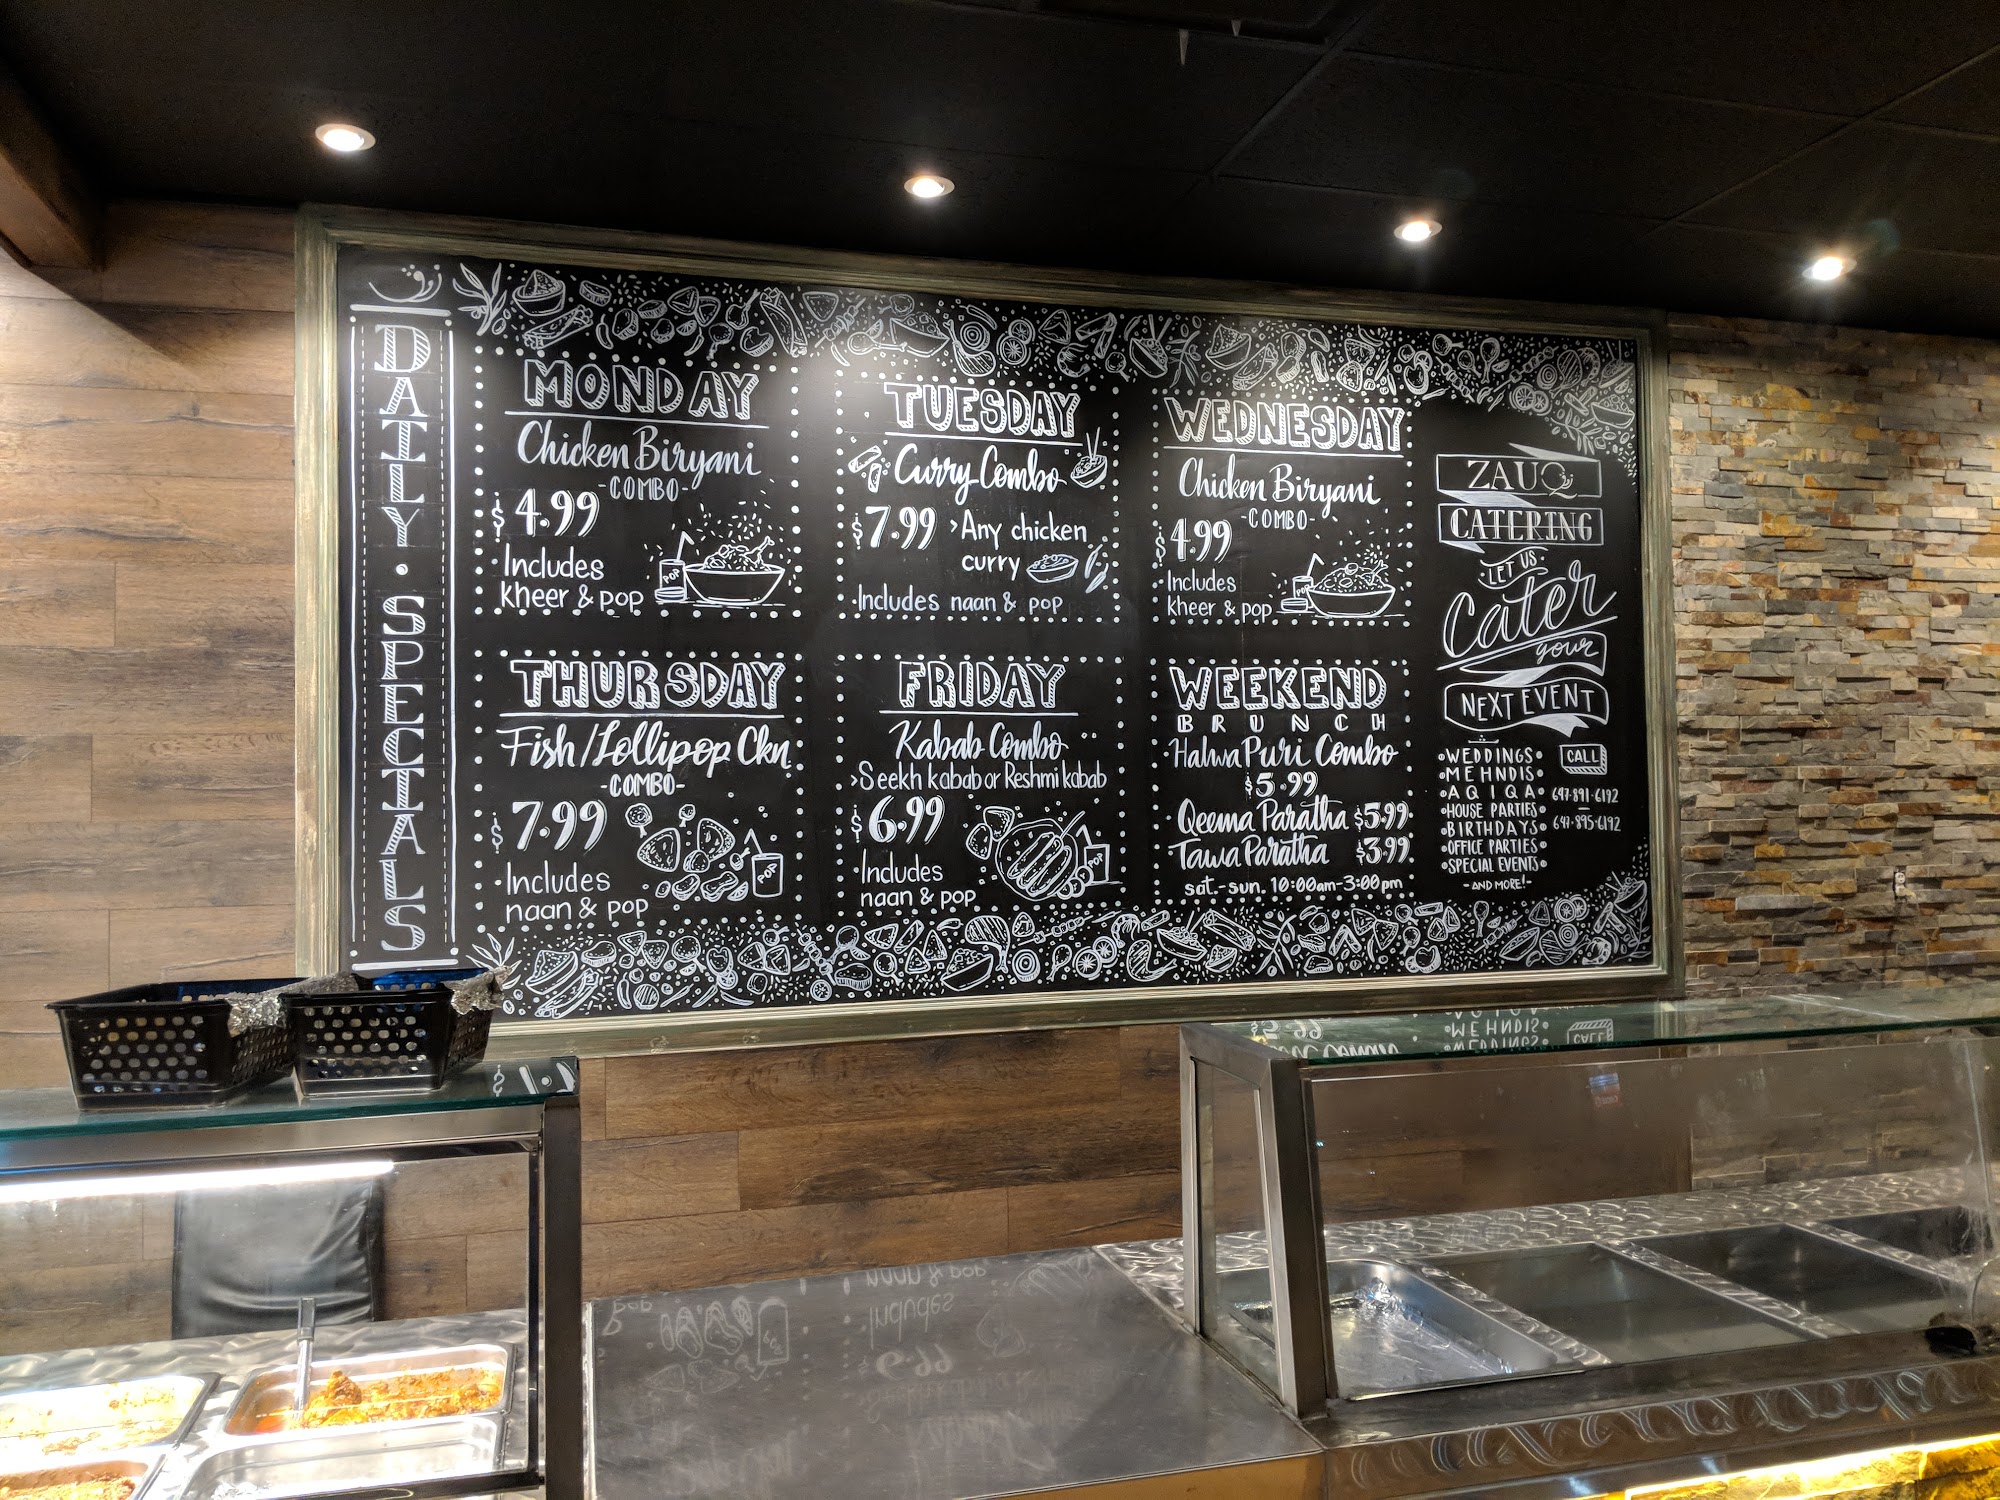 DAILY • SPECIALS
MONDAY
Chicken Biryani
-COMBO-
$4.99
•Includes
kheer & pop
POP
TUESDAY
Curry Combo
$7.99 >Any chicken
curry
•Includes naan & pop
WEDNESDAY
Chicken Biryani
-COMBO-
$4.99
Includes
kheer & pop
THURSDAY
Fish/Lollipop Ckn
-COMBO-
$7.99
•Includes
naan & pop
POP
FRIDAY
Kabab Combo
>Seekh kabab or Reshmi kabab
$6.99
•Includes
naan & pop
POP
WEEKEND
BRUNCH
•Halwa Puri Combo
$5.99
Qeema Paratha $5.99
Tawa Paratha $3.99
sat.-sun. 10:00am-3:00pm
ZAUQ
CATERING
LET US
Cater
your
NEXT EVENT
•WEDDINGS•
•MEHNDIS•
•AQIQA•
•HOUSE PARTIES•
•BIRTHDAYS•
•OFFICE PARTIES•
•SPECIAL EVENTS•
-AND MORE!-
CALL
647·891·6192
647·895·6192